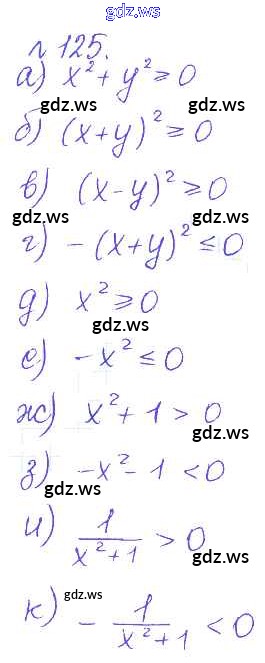 gdz.ws
л 125.
а) x² + y² ≥ 0
gdz.ws gdz.ws
б) (x+y)² ≥ 0
gdz.ws
в) (x-y)² ≥ 0
gdz.ws gdz.ws
г) -(x+y)² ≤ 0
д) x² ≥ 0
gdz.ws
е) -x² ≤ 0
gdz.ws
ж) x² + 1 > 0
gdz.ws
з) -x² - 1 < 0
gdz.ws
и) 1/(x²+1) > 0
gdz.ws
gdz.ws
к) - 1/(x²+1) < 0
gdz.ws